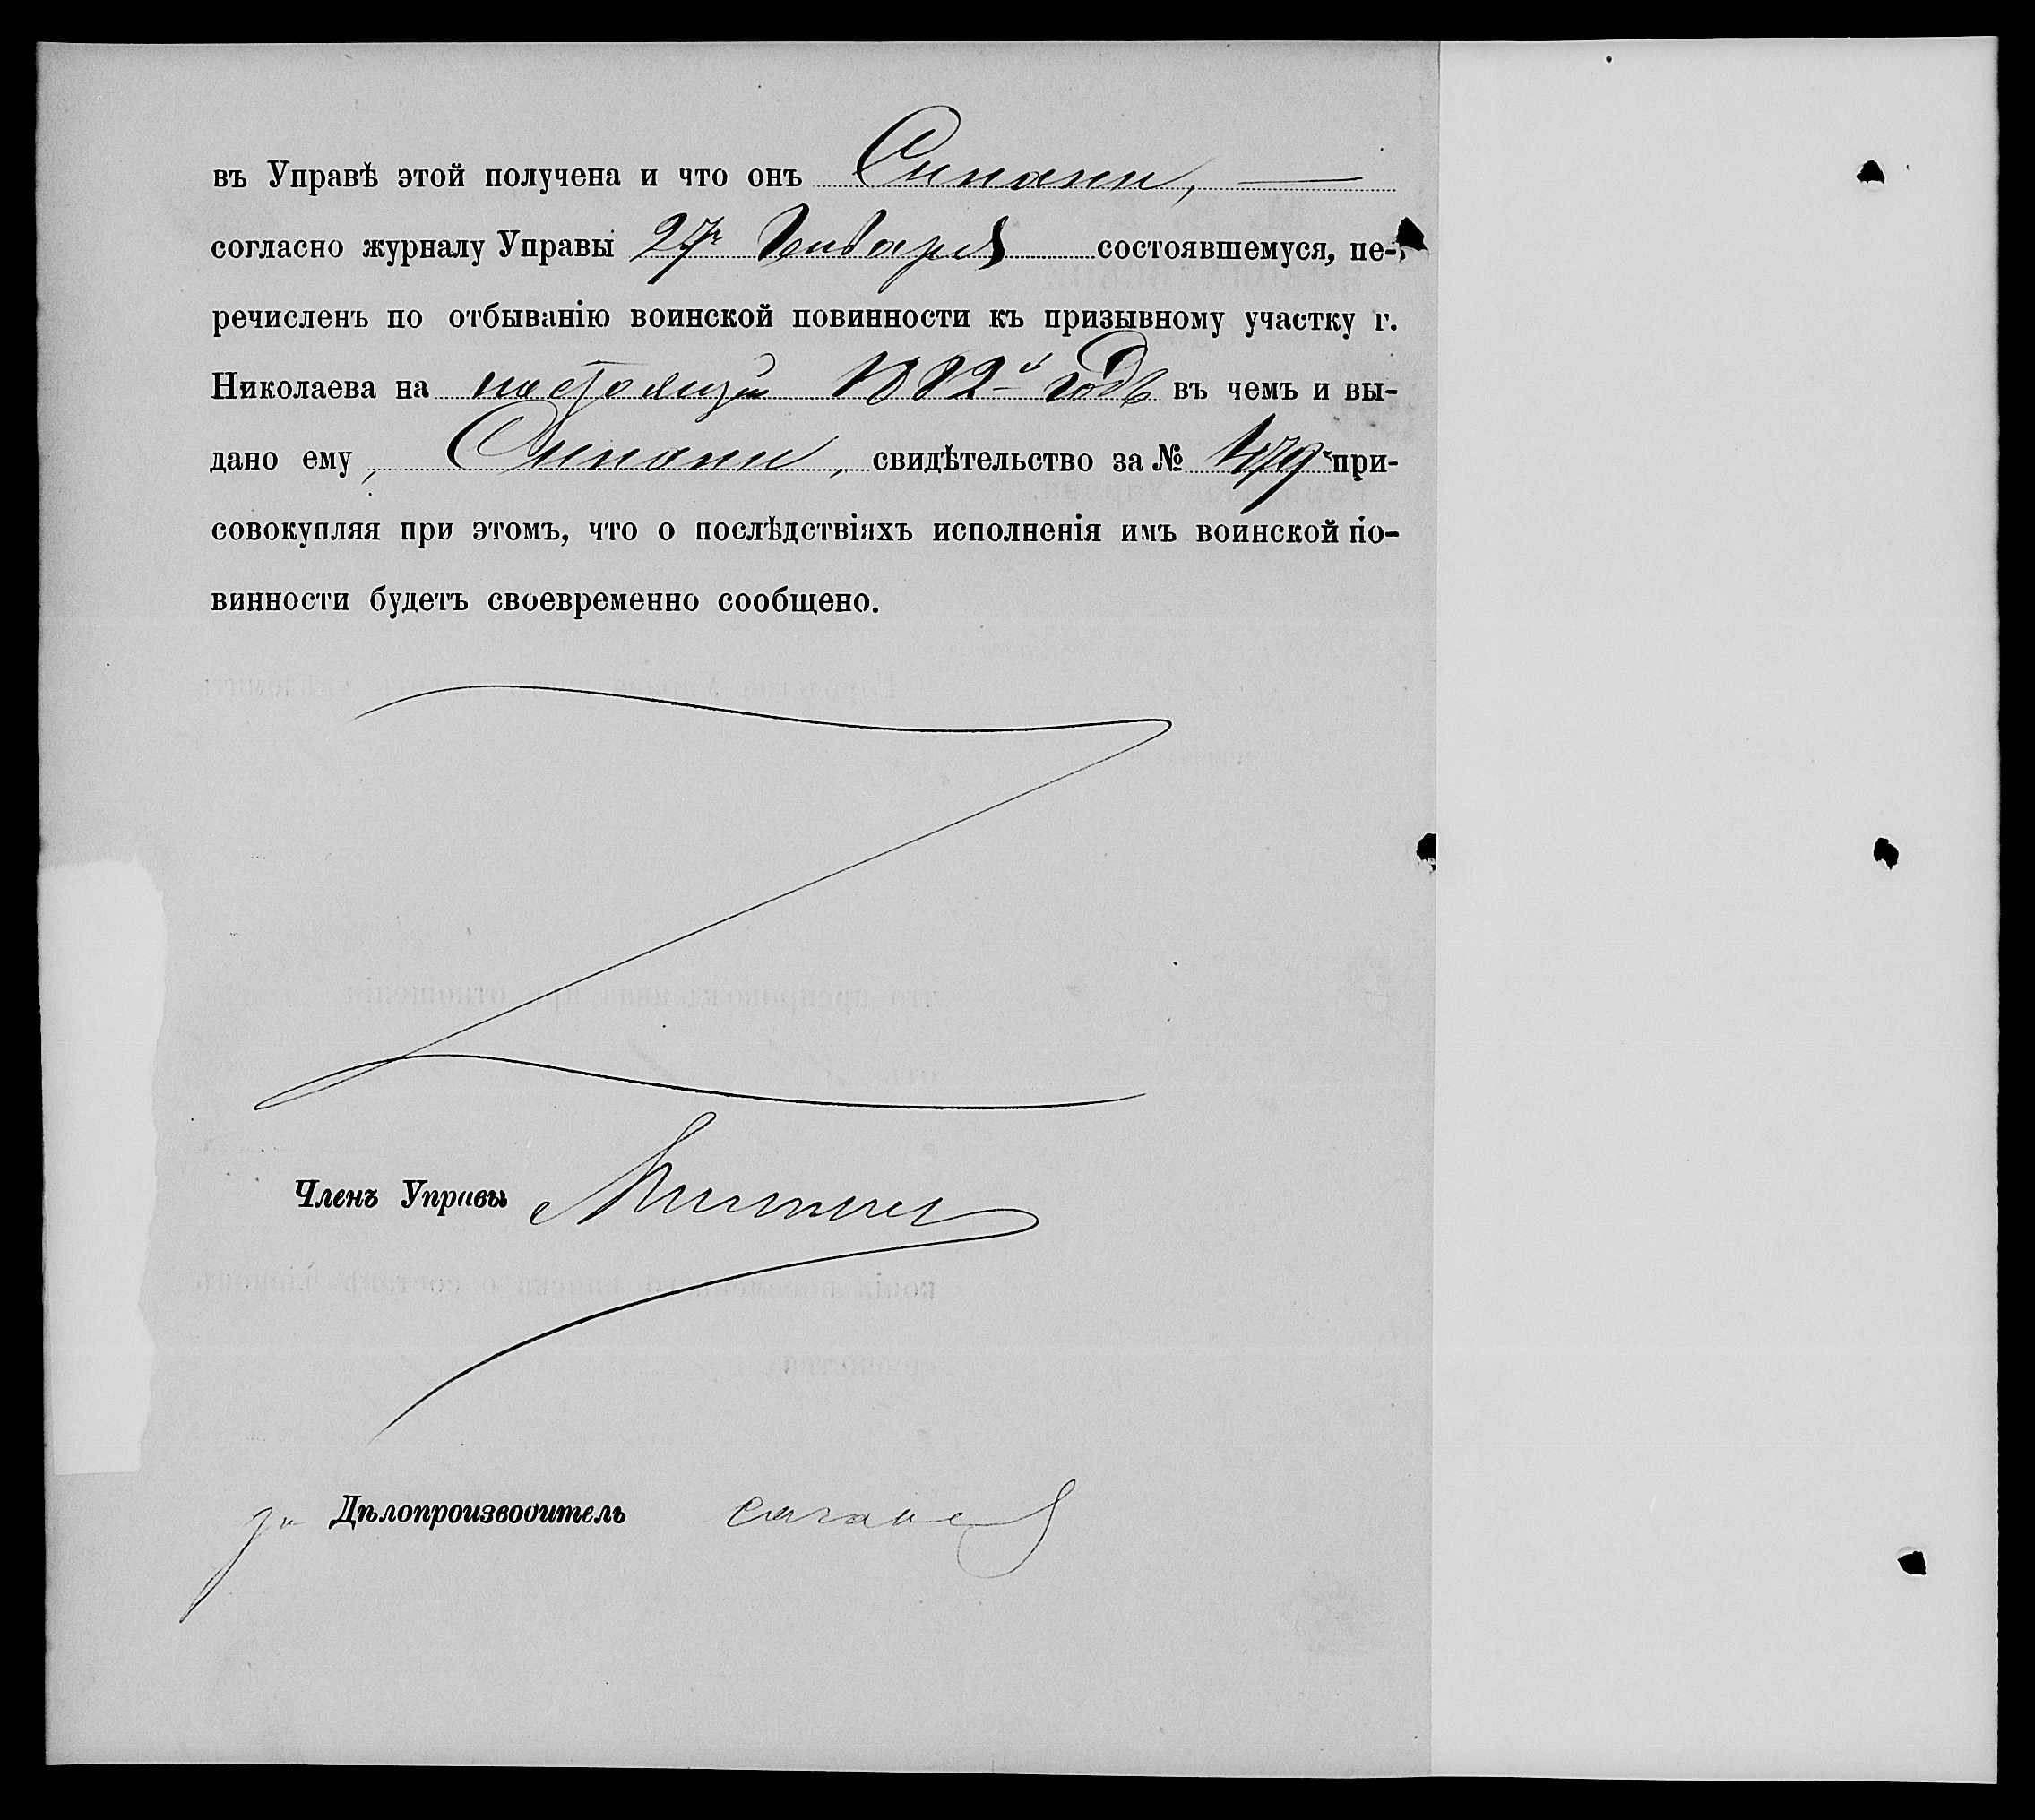 въ Управѣ этой получена и что онъ Синани, —
согласно журналу Управы 27 Января состоявшемуся, пе-
речисленъ по отбыванію воинской повинности къ призывному участку г.
Николаева на настоящій 1882й годъ въ чемъ и вы-
дано ему, Синани, свидѣтельство за № 479 при-
совокупляя при этомъ, что о послѣдствіяхъ исполненія имъ воинской по-
винности будетъ своевременно сообщено.
Членъ Управы
Дѣлопроизводитель